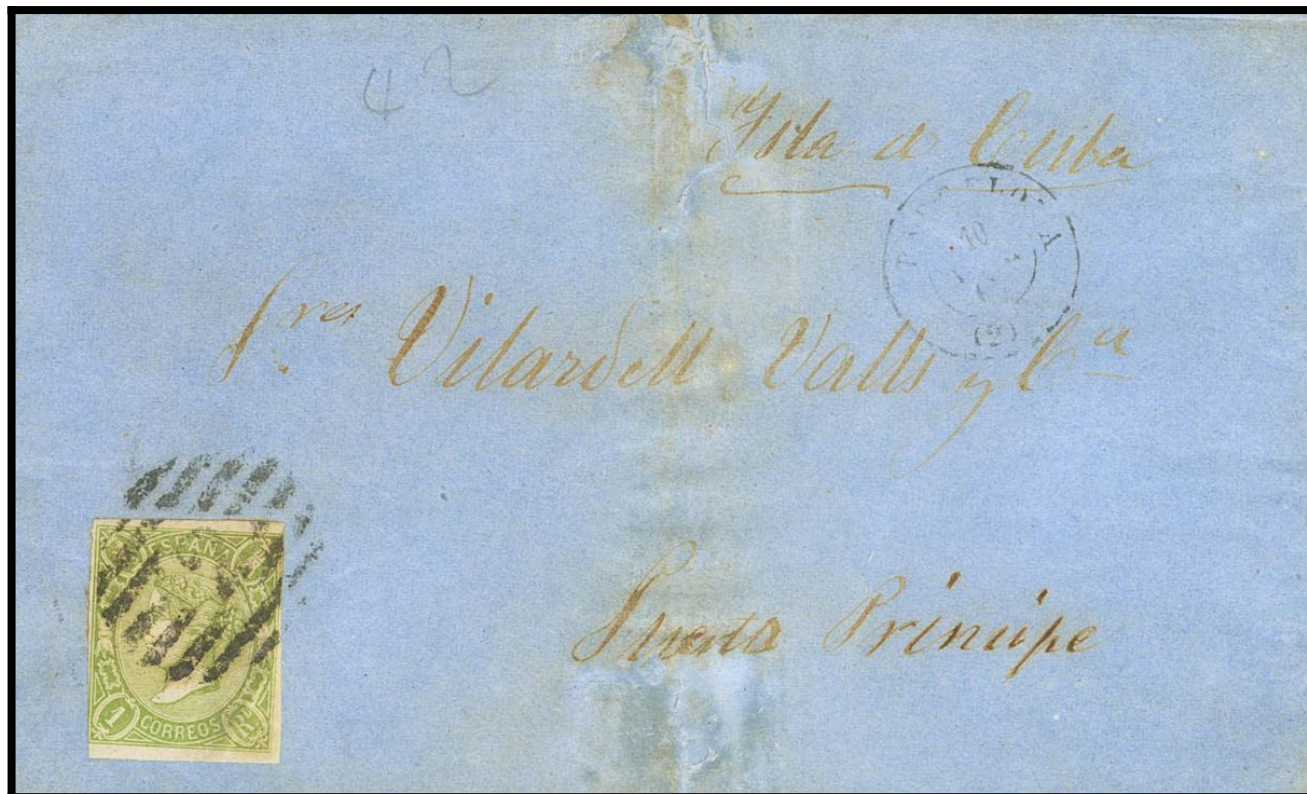 42
Isla de Cuba
BARCELONA
10
(2)
Sres Vilardell Valls y Cia
Puerto Principe
ESPAÑA
CORREOS
1 Rl